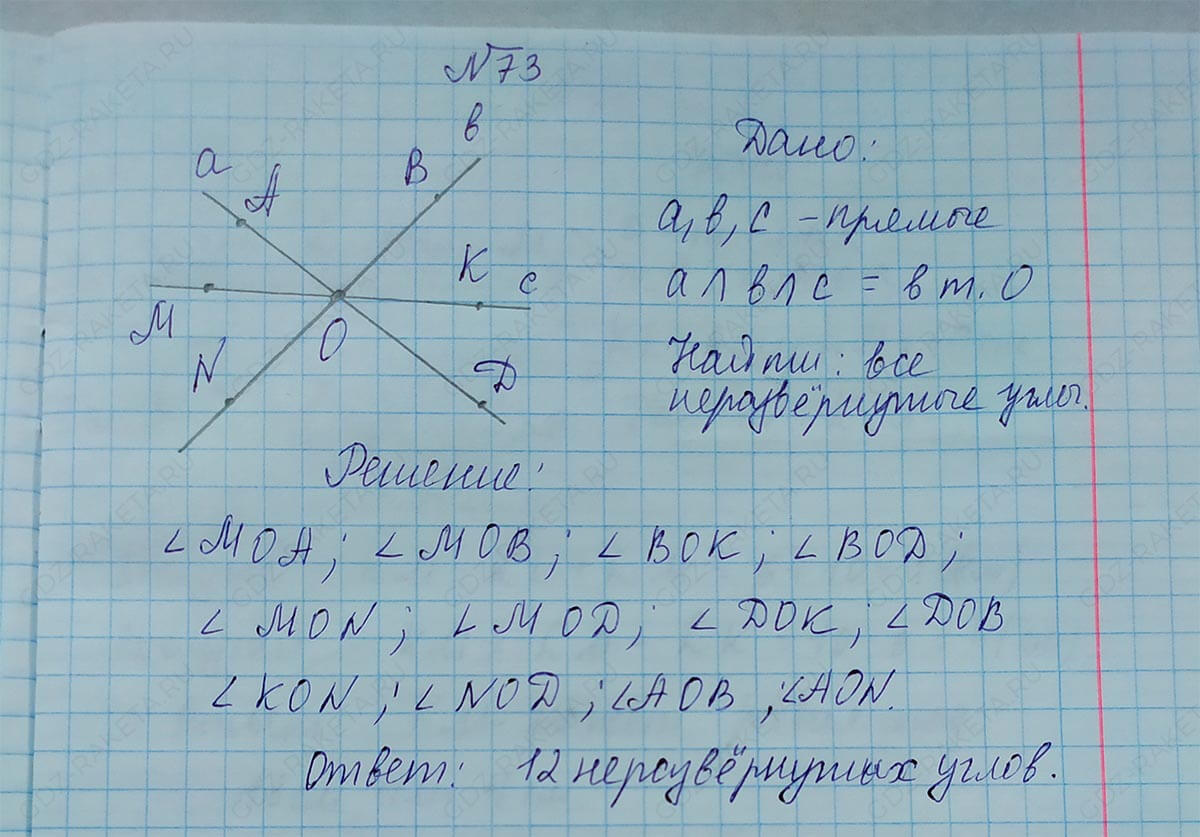 №73
a A B в
Дано:
M K c
a, в, c – прямые
a ∩ в ∩ c = в т. О
N O D
Найти: все
неразвёрнутые углы.
Решение:
∠MOA; ∠MOB; ∠BOK; ∠BOD;
∠MON; ∠MOD; ∠DOK; ∠DOB
∠KON; ∠NOD; ∠AOB; ∠AON.
Ответ: 12 неразвёрнутых углов.
GDZ-RAKETA.RU